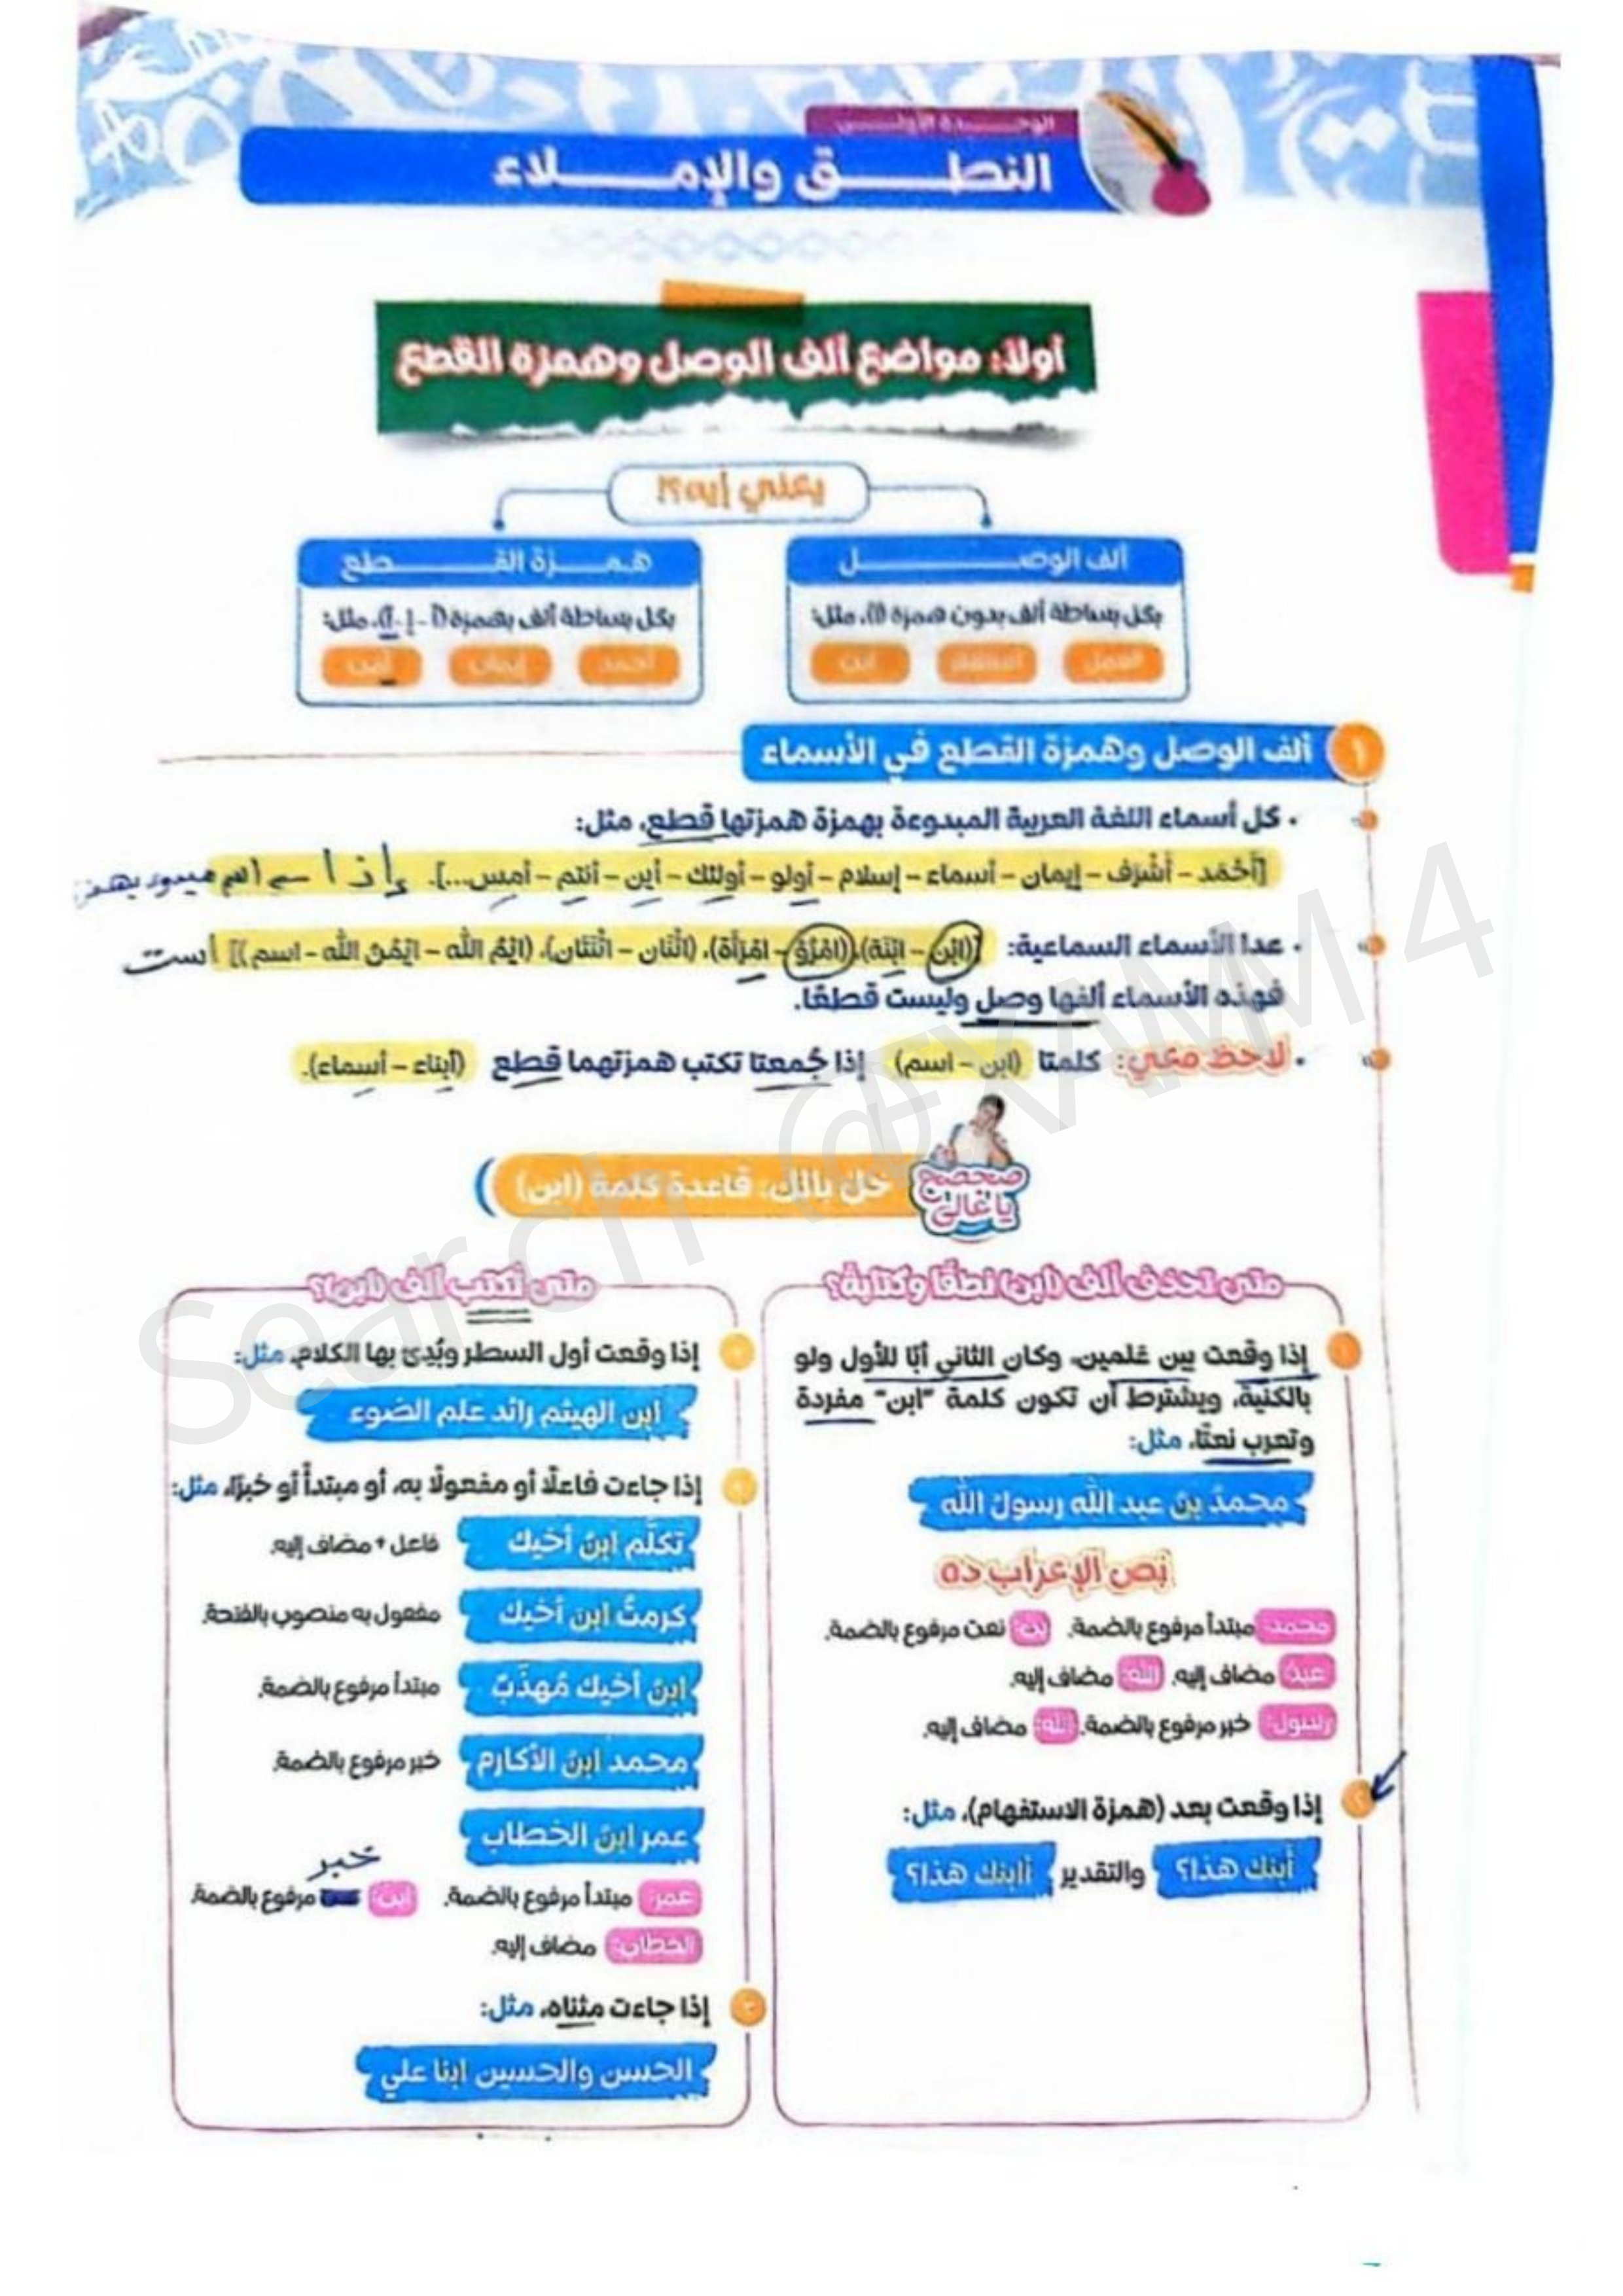 الوحدة الأولى
النطق والإملاء
أولا: مواضع ألف الوصل وهمزة القطع
يعني إيه؟!
ألف الوصل
بكل بساطة ألف بدون همزة (ا)، مثل:
العمل
ابن
همزة القطع
بكل بساطة ألف بهمزة (أ - إ - آ)، مثل:
أحمد إيمان
١ ألف الوصل وهمزة القطع في الأسماء
• كل أسماء اللغة العربية المبدوءة بهمزة همزتها قطع، مثل:
[أَحْمَد – أَشْرَف – إيمان – أسماء – إسلام – أولو – أولئك – أين – أنتم – أمس...]. إذا
• عدا الأسماء السماعية: [(ابْن – ابْنَة)، (امْرُؤ – امْرَأَة)، (اثْنَان – اثْنَتَان)، (ايْمُ الله – ايْمُنُ الله – اسم)] است
فهذه الأسماء ألفها وصل وليست قطعًا.
• لاحظ معي: كلمتا (ابن – اسم) إذا جُمعتا تكتب همزتهما قطع (أبناء – أسماء).
صحصح يا غالي
خل بالك: قاعدة كلمة (ابن)
متى تحذف ألف (ابن) نطقًا وكتابة؟
١ إذا وقعت بين علمين، وكان الثاني أبًا للأول ولو
بالكنية، ويشترط أن تكون كلمة "ابن" مفردة
وتعرب نعتًا، مثل:
محمدُ بن عبد الله رسولُ الله
نص الإعراب ده
محمد: مبتدأ مرفوع بالضمة. بن: نعت مرفوع بالضمة.
عبد: مضاف إليه. الله: مضاف إليه.
رسول: خبر مرفوع بالضمة. الله: مضاف إليه.
٢ إذا وقعت بعد (همزة الاستفهام)، مثل:
أبنك هذا؟ والتقدير أابنك هذا؟
متى تُكتب ألف (ابن)؟
إذا وقعت أول السطر وبُدئ بها الكلام، مثل:
ابن الهيثم رائد علم الضوء
إذا جاءت فاعلًا أو مفعولًا به، أو مبتدأً أو خبرًا، مثل:
تكلَّم ابنُ أخيك فاعل + مضاف إليه.
كرمتُ ابن أخيك مفعول به منصوب بالفتحة.
ابن أخيك مُهذَّبٌ مبتدأ مرفوع بالضمة.
محمد ابنُ الأكارم خبر مرفوع بالضمة.
عمر ابنُ الخطاب
خبر
عمر: مبتدأ مرفوع بالضمة. ابن: مرفوع بالضمة.
الخطاب: مضاف إليه.
٣ إذا جاءت مثناه، مثل:
الحسن والحسين ابنا علي
Search @EXAM4